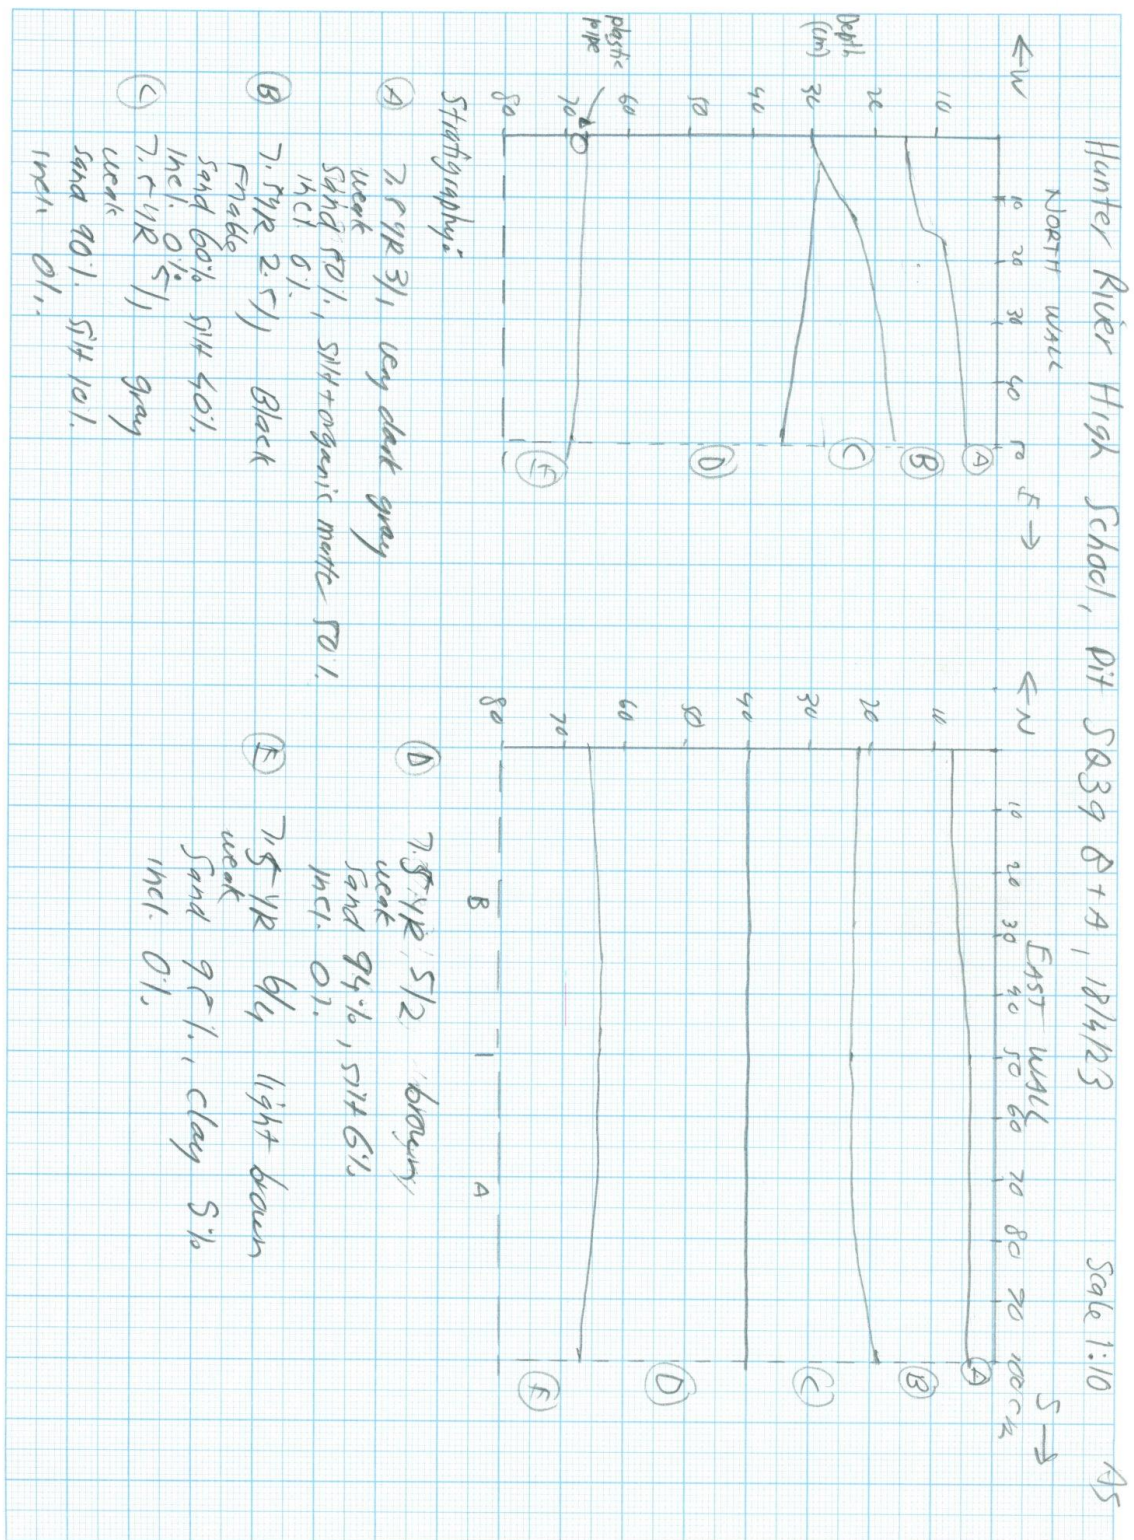 Hunter River High School, Pit SQ39 B+A, 18/4/23 Scale 1:10 AS
NORTH WALL
← W
E →
10 20 30 40 50
Depth
(cm)
10
20
30
40
50
60
70
80
plastic
pipe
A
B
C
D
E
EAST WALL
← N
S →
10 20 30 40 50 60 70 80 90 100 cm
10
20
30
40
50
60
70
80
A
B
C
D
E
B | A
Stratigraphy:
A 7.5YR 3/1 very dark gray
weak
Sand 50%, silt+organic matter 50%
incl. 0%
B 7.5YR 2.5/1 Black
Friable
Sand 60% silt 40%
incl. 0%
C 7.5YR 5/1 gray
weak
Sand 90% silt 10%
incl. 0%
D 7.5YR 5/2 brown
weak
Sand 94%, silt 6%
incl. 0%
E 7.5YR 6/4 light brown
weak
Sand 95%, clay 5%
incl. 0%